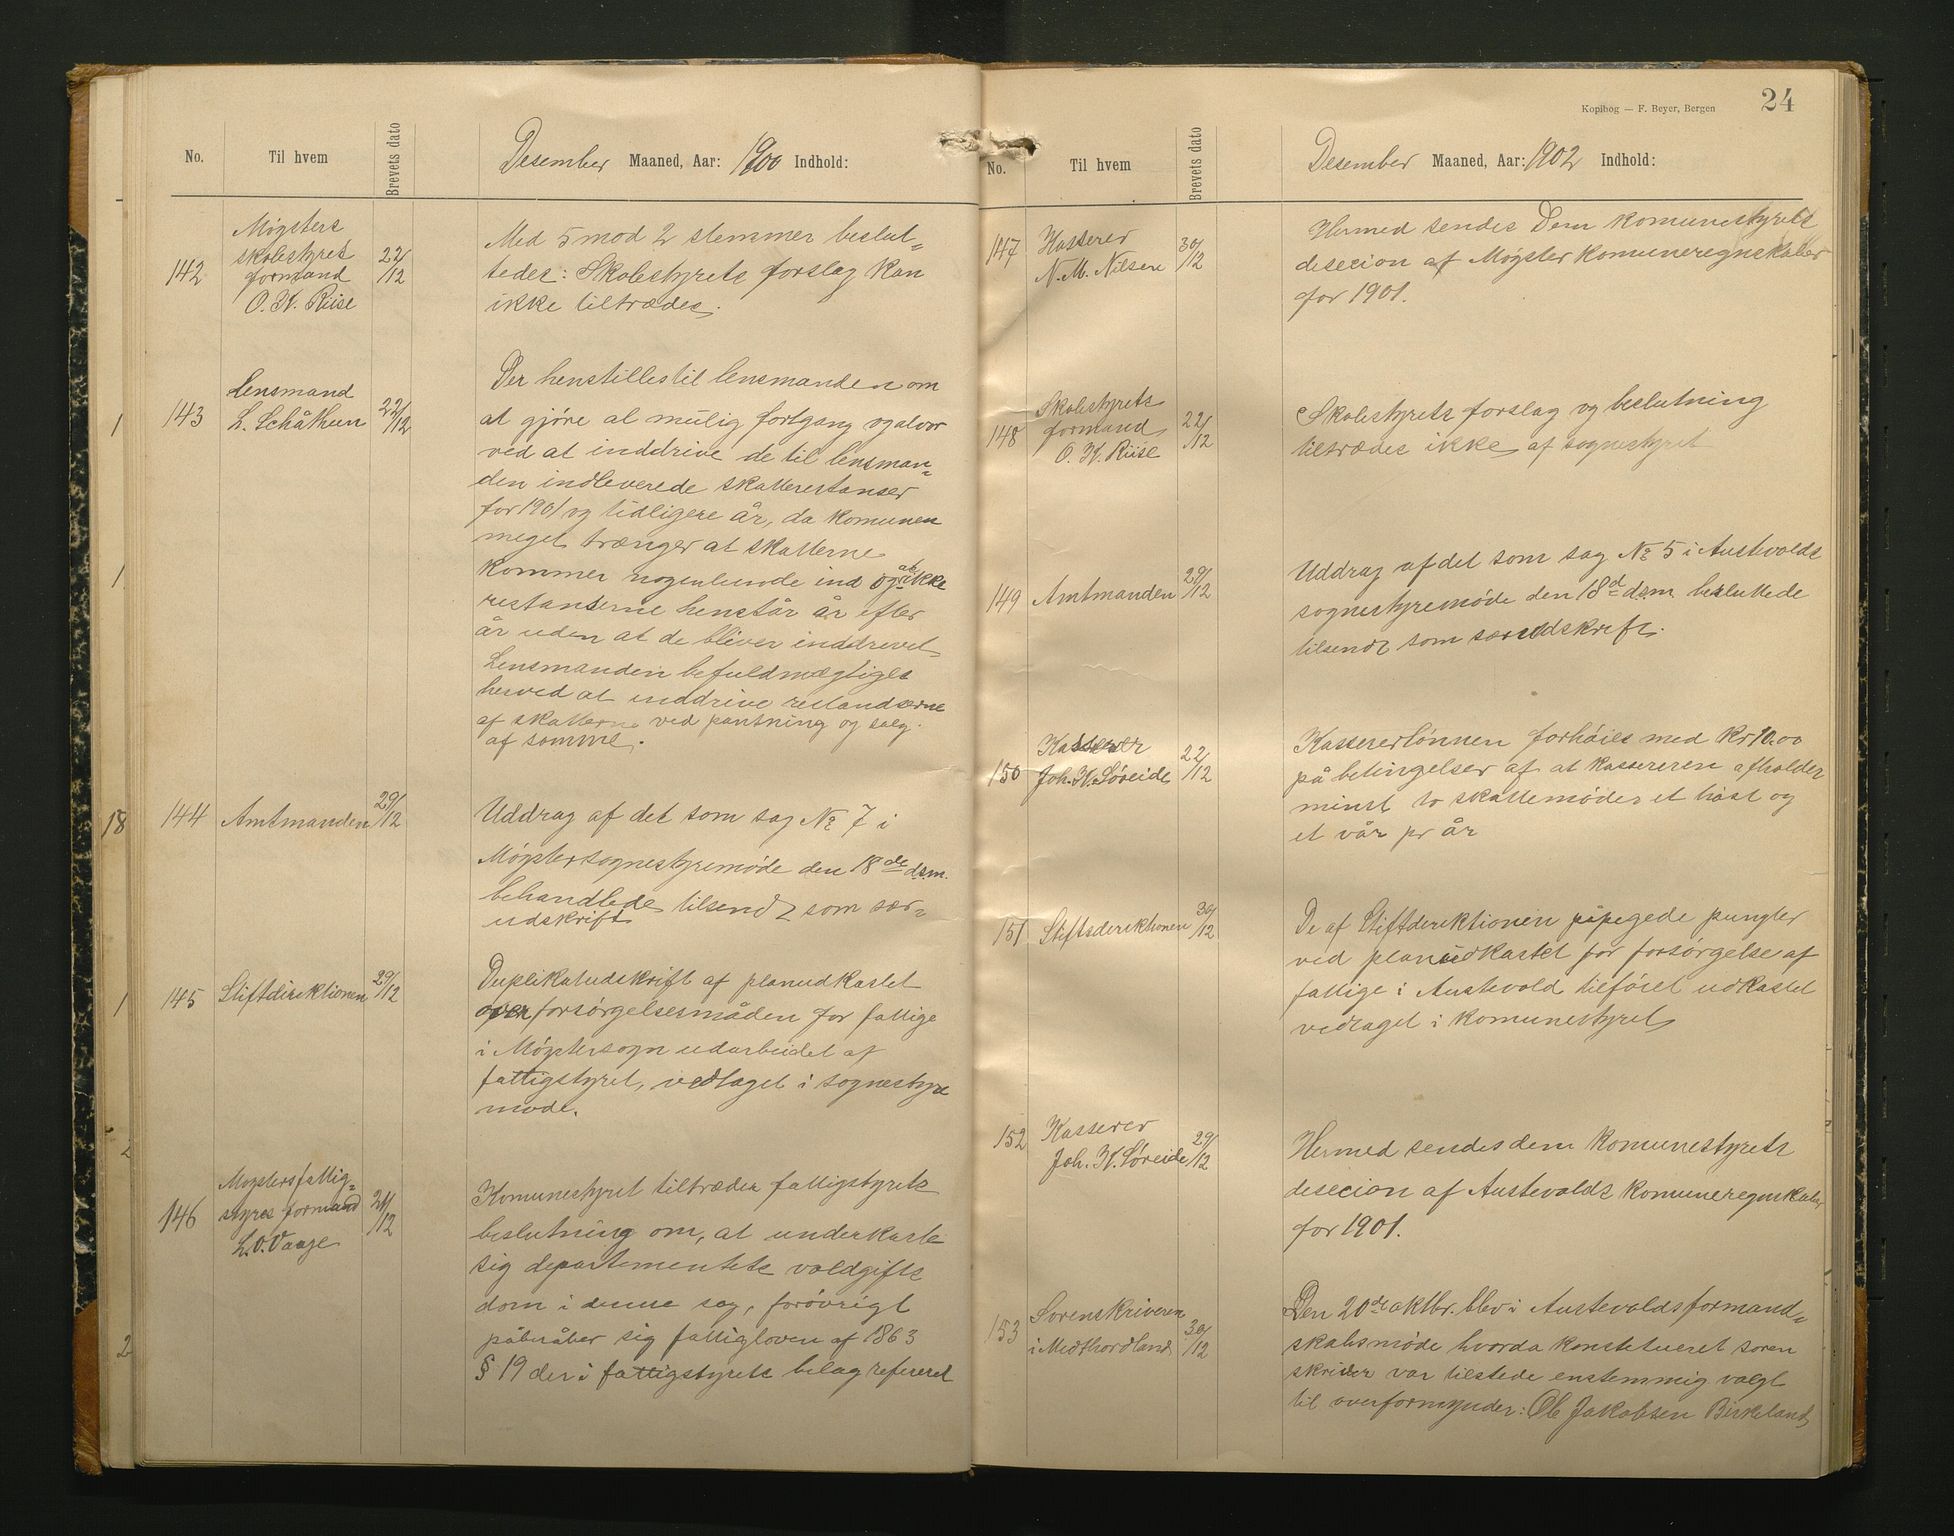 No.
Til hvem
Brevets dato
Desember Maaned, Aar: 1900 Indhold:
142
Møgsters
skolestyret
formand
O. K. Riise
22/12
Med 5 mod 2 stemmer beslut=
tedes: Skolestyrets forslag kan
ikke tiltrædes.
143
Lensmand
L. Schåthun
22/12
Der henstilles til lensmanden om
at gjöre al mulig fortgang og alvor
ved at inddrive de til lensman=
den indleverede skatterestanser
for 1901 og tidligere år, da komunen
meget trænger at skatterne
kommer nogenlunde ind og at ikke
restanserne henstår år efter
år uden at de bliver inddrevet
Lensmanden befuldmægtiges
herved at inddrive restandserne
af skatterne ved pantning og salg
af somme.
144
Amtmanden
29/12
Uddrag af det som sag No 7 i
Møgster sognestyremøde den 18de dsm.
behandlede tilsendt som sær=
udskrift
145
Stiftdirektionen
29/12
Duplikatudskrift af planudkastet
over forsörgelsesmåden for fattige
i Møgster sogn udarbeidet af
fattigstyret, vedtaget i sognestyre
møde.
146
Møgsters fattig=
styres formand
L. O. Vaage
24/12
Komunestyret tiltræder fattigstyrets
beslutning om, at underkaste
sig departementets voldgifts
dom i denne sag, forövrigt
påberåber sig fattigloven af 1863
§ 19 der i fattigstyrets belag refereret
1
1
18
1
2
2
Kopibog — F. Beyer, Bergen
24
No.
Til hvem
Brevets dato
Desember Maaned, Aar: 1902 Indhold:
147
Kasserer
N. M. Nilsen
30/12
Hermed sendes Dem komunestyrets
desecion af Møgster komuneregnskaber
for 1901.
148
Skolestyrets
formand
O. K. Riise
22/12
Skolestyrets forslag og beslutning
tiltrædes ikke af sognestyret
149
Amtmanden
29/12
Uddrag af det som sag No 5 i Austevolds
sognestyremøde den 18d dsm. besluttede
tilsendt som særudskrift.
150
Kasserer
Joh. K. Söreide
22/12
Kassererlönnen forhöies med Kr 10.00
på betingelser af at kassereren afholder
minst to skattemøder et höst og
et vår pr år
151
Stiftsderektionen
30/12
De af Stiftderektionen påpegede pungter
ved planudkastet for forsörgelse af
fattige i Austevold tilföiet udkastet
vedtaget i komunestyret
152
Kasserer
Joh. K. Söreide
29/12
Hermed sendes dem komunestyrets
desecion af Austevolds komuneregnskaber
for 1901.
153
Sorenskriveren
i Midthordland
30/12
Den 20de oktbr. blev i Austevolds formand=
skabsmøde hvorda konstitueret soren
skriver var tilstede enstemmig valgt
til overformynder: Ole Jakobsen Birkeland